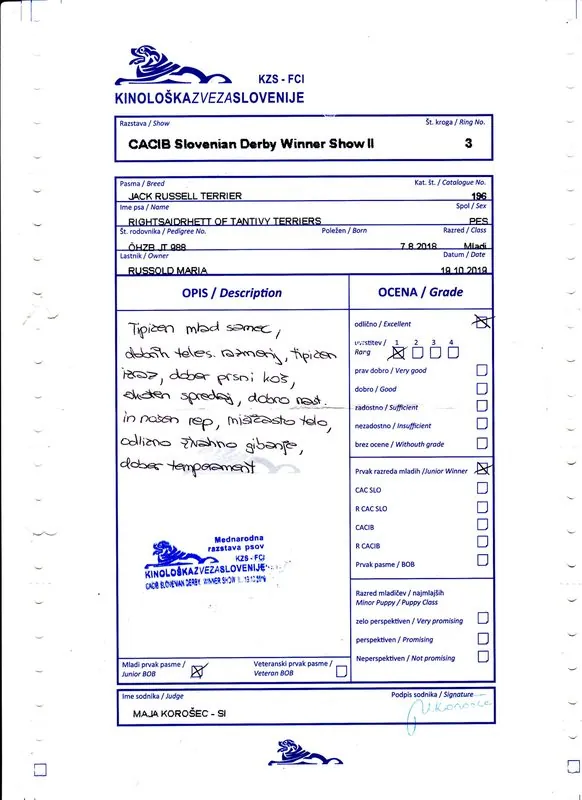 KZS - FCI
KINOLOŠKAZVEZASLOVENIJE
Razstava / Show
Št. kroga / Ring No.
CACIB Slovenian Derby Winner Show II
3
Pasma / Breed
Kat. št. / Catalogue No.
JACK RUSSELL TERRIER
196
Ime psa / Name
Spol / Sex
RIGHTSAIDRHETT OF TANTIVY TERRIERS
PES
Št. rodovnika / Pedigree No.
Poležen / Born
Razred / Class
ÖHZB JT 988
7.8.2018
Mladi
Lastnik / Owner
Datum / Date
RUSSOLD MARIA
19.10.2019
OPIS / Description
OCENA / Grade
Tipičen mlad samec,
dobrih teles. razmerij, tipičen
izraz, dober prsni koš,
soliden spredaj, dobro nast.
in nošen rep, mišičasto telo,
odlično živahno gibanje,
dober temperament
odlično / Excellent
uvrstitev / Rang
1 2 3 4
prav dobro / Very good
dobro / Good
zadostno / Sufficient
nezadostno / Insufficient
brez ocene / Withouth grade
Prvak razreda mladih / Junior Winner
CAC SLO
R CAC SLO
CACIB
R CACIB
Prvak pasme / BOB
Razred mladičev / najmlajših
Minor Puppy / Puppy Class
zelo perspektiven / Very promising
perspektiven / Promising
Neperspektiven / Not promising
Mednarodna
razstava psov
KZS - FCI
KINOLOŠKAZVEZASLOVENIJE
CACIB SLOVENIAN DERBY WINNER SHOW II, 19.10.2019
Mladi prvak pasme /
Junior BOB
Veteranski prvak pasme /
Veteran BOB
Ime sodnika / Judge
Podpis sodnika / Signature
MAJA KOROŠEC - SI